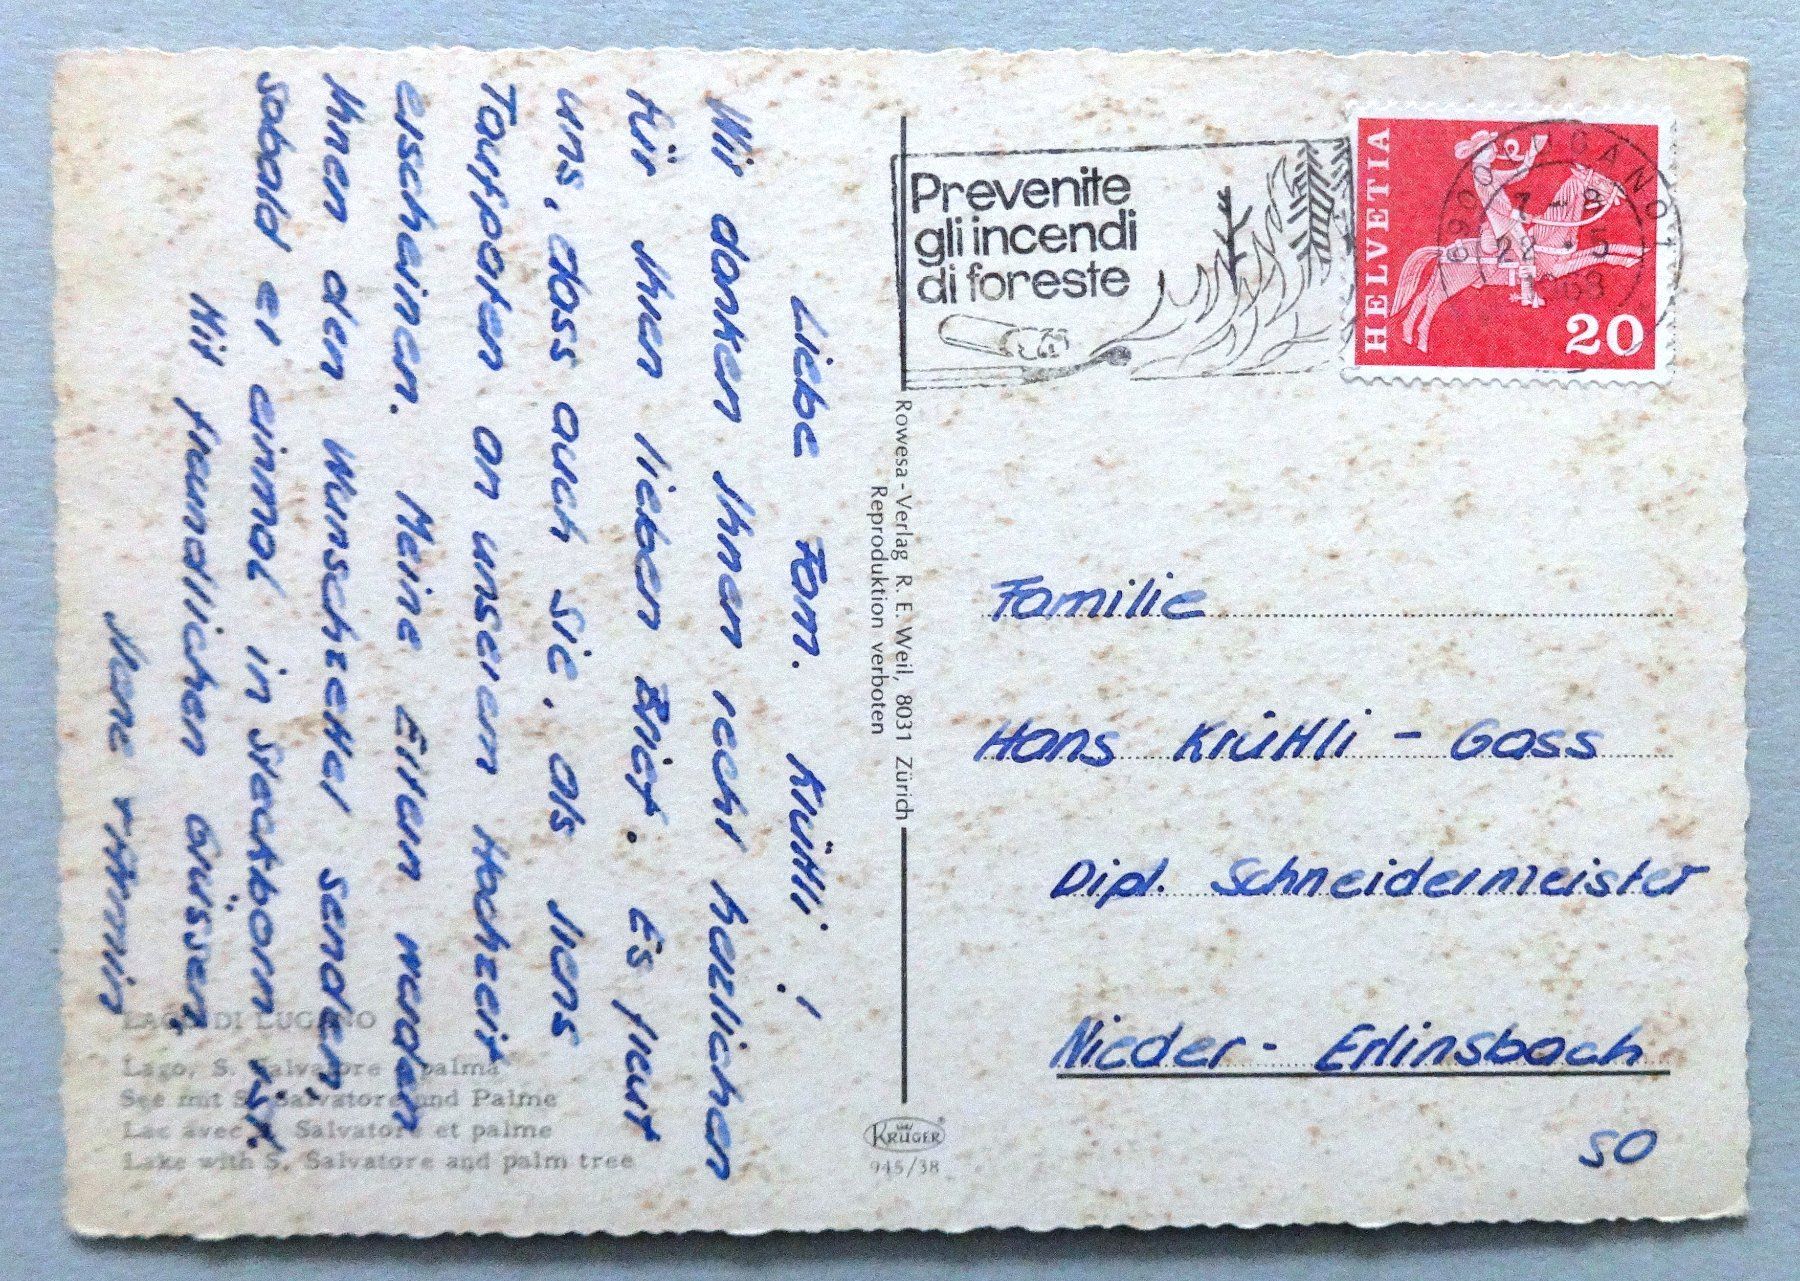 Liebe Fam. Krüttli !
Wir danken Ihnen recht herzlichen
für Ihren lieben Brief. Es freut
uns, dass auch Sie, als Irens
Taufpaten an unserem Hochzeit
erscheinen. Meine Eltern werden
Ihnen den Wunschzettel senden,
sobald er einmal in Steckborn ist.
Mit freundlichen Grüssen
Irene + Armin
LAGO DI LUGANO
Lago, S. Salvatore e palma
See mit S. Salvatore und Palme
Lac avec S. Salvatore et palme
Lake with S. Salvatore and palm tree
Rowesa - Verlag R. E. Weil, 8031 Zürich
Reproduktion verboten
KRÜGER
945/38
Prevenite
gli incendi
di foreste
6900 LUGANO 1
7-8
22.5
1968
HELVETIA
20
Familie
Hans Krüttli - Gass
Dipl. Schneidermeister
Nieder - Erlinsbach
SO